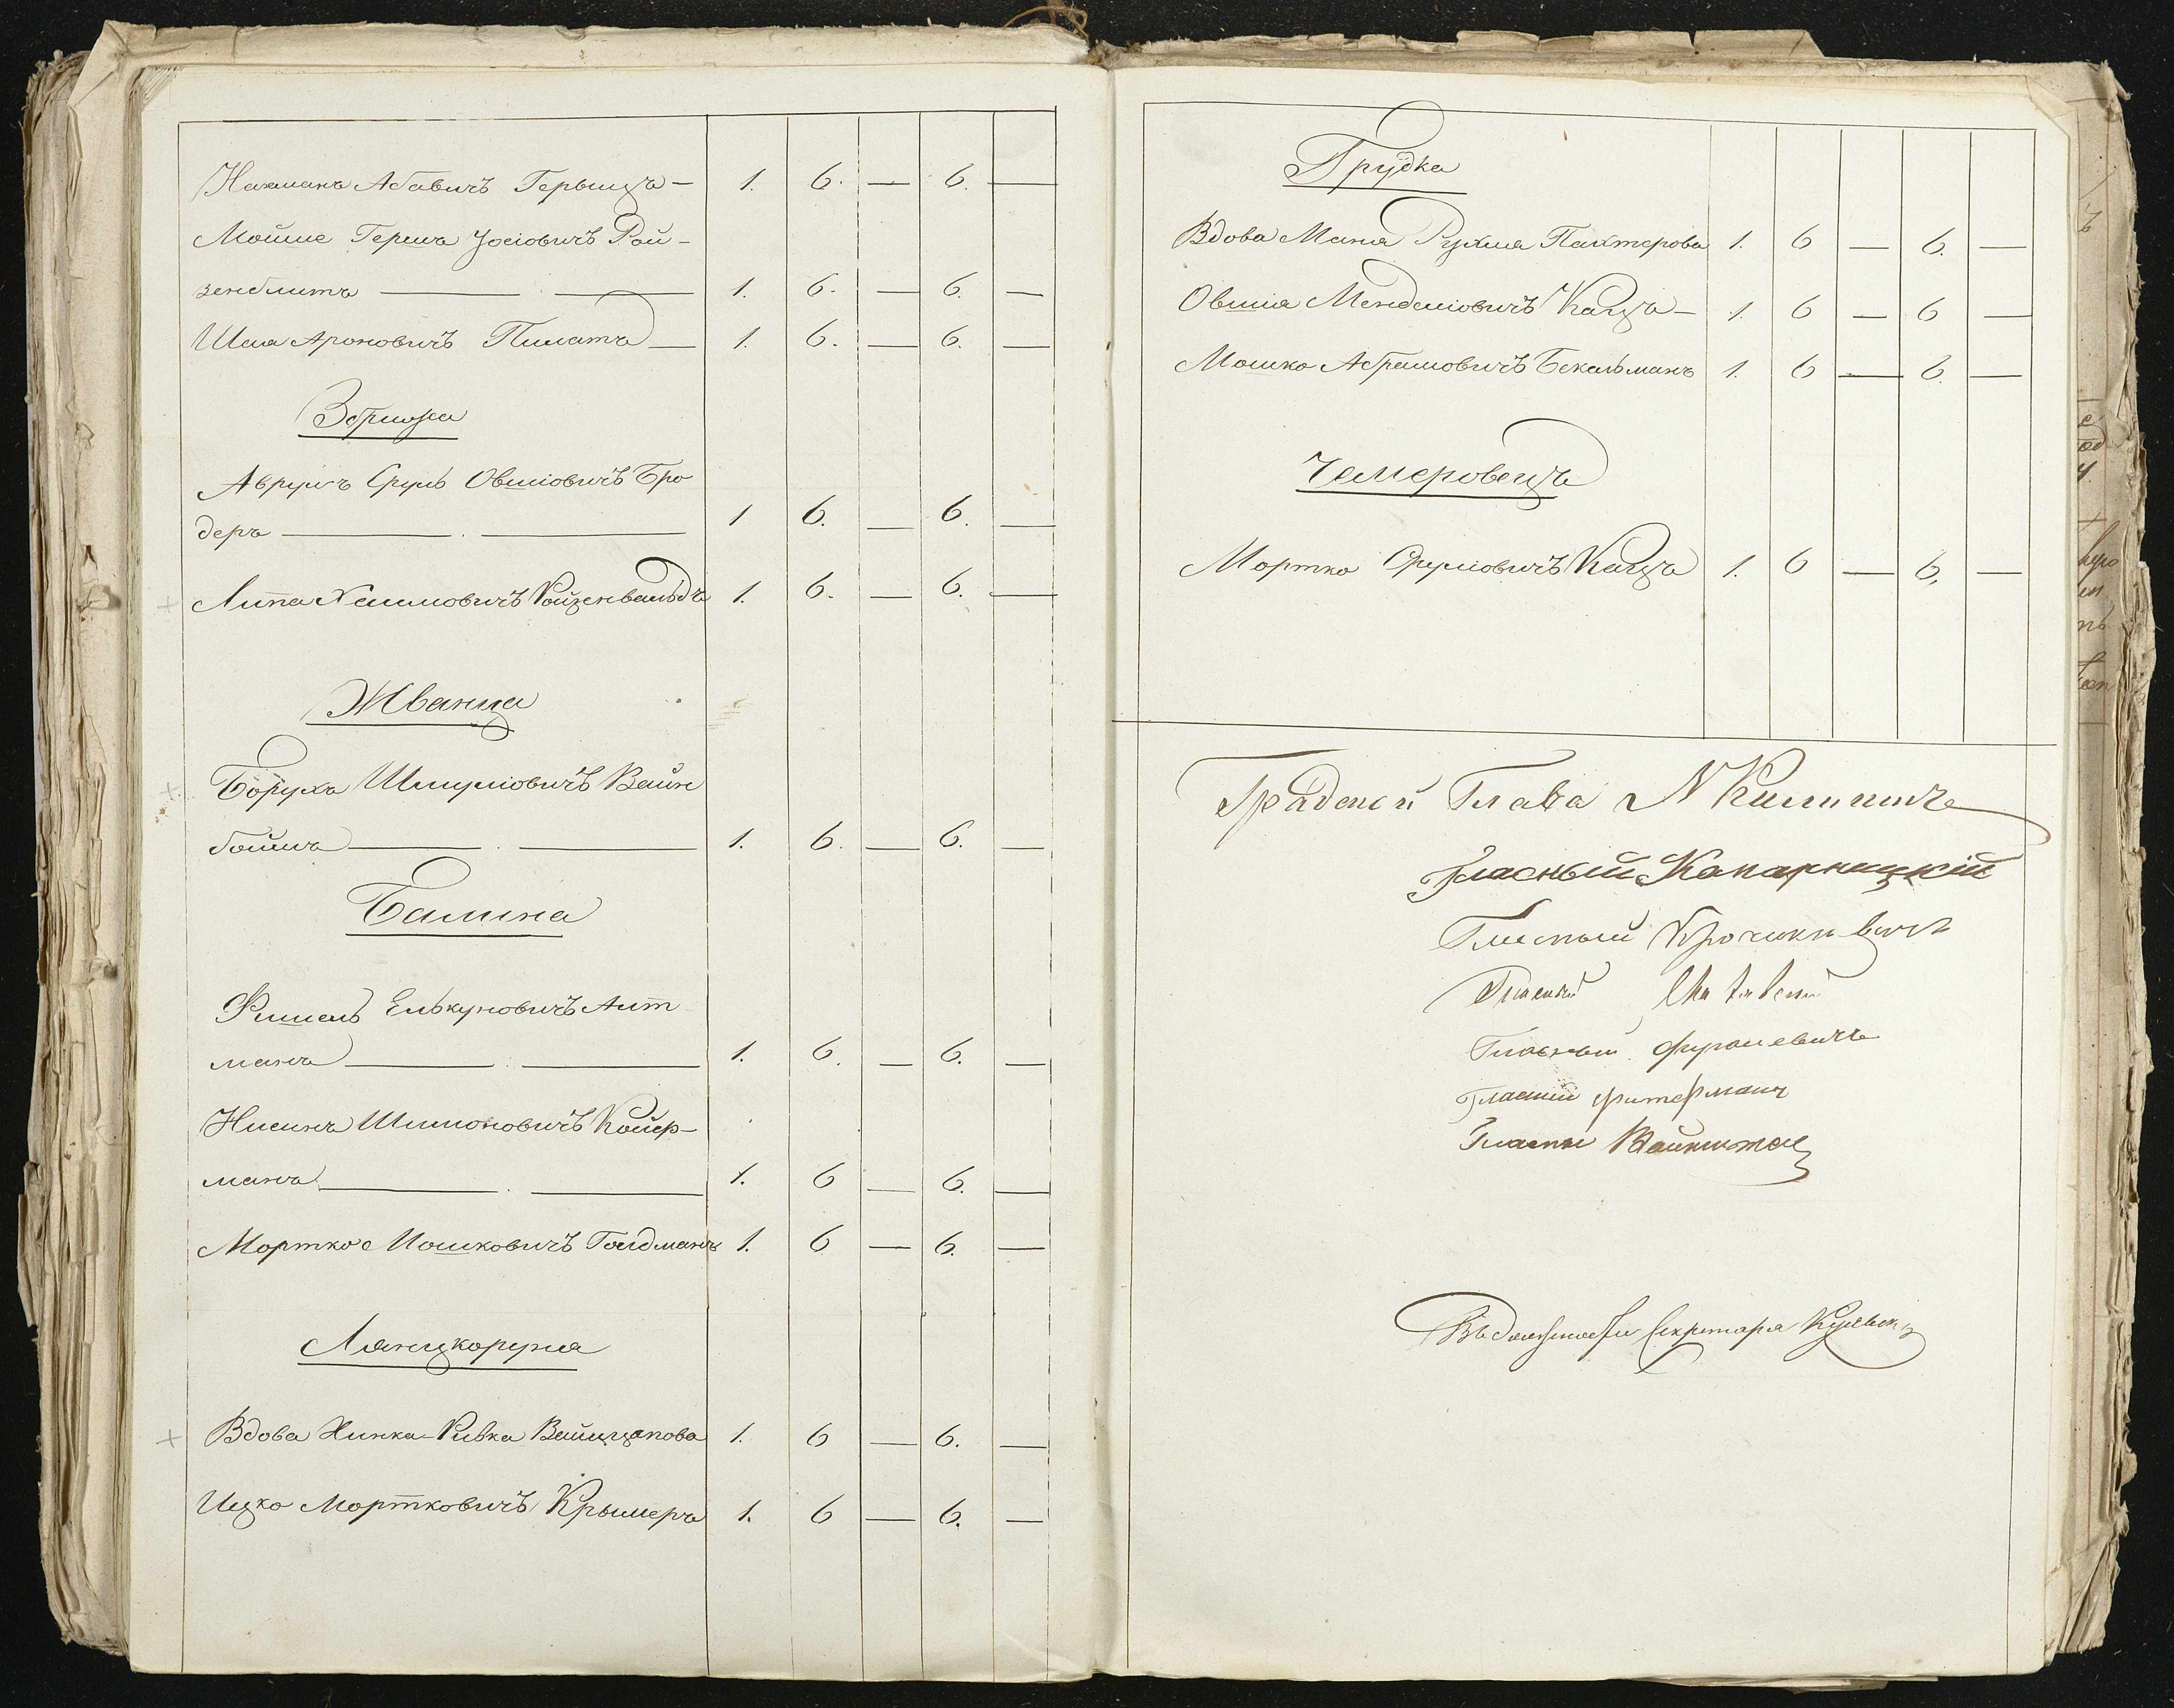 Нахманъ Абавичъ Герыцъ — 1. 6. — 6. —
Мойше Герша Іосіовичъ Рой-
зенблитъ — — 1. 6. — 6. —
Шая Ароновичъ Пилатъ — 1. 6. — 6. —
Збрижа
Аврумъ Сруль Овшіовичъ Бро
деръ — — 1 6. — 6. —
Липа Хаимовичъ Ройзенвальдъ 1. 6. — 6. —
Жванца
Борухъ Шмуліовичъ Вайн
боймъ — — 1. 6. — 6. —
Балина
Фишель Елькуновичъ Алт
манъ — — 1. 6. — 6. —
Нисинъ Шимоновичъ Койер-
манъ — — 1. 6 — 6. —
Мортко Мошковичъ Голдманъ 1. 6 — 6. —
Лянцкоруня
Вдова Хинка-Ривка 1. 6 — 6. —
Ицко Мортковичъ Крымеръ 1. 6 — 6. —
Грудка
Вдова Маня Рухля Пахтерова 1. 6 — 6. —
Овшія Менделіовичъ Кацъ — 1. 6 — 6 —
Мошко Абрамовичъ Бекальманъ 1. 6 — 6. —
Чемеровецъ
Мортко Сруліовичъ Кацъ 1. 6 — 6. —
Градской Глава
Гласный Капарницкій
Гласный
Гласный
Гласный
Гласный Фитерманъ
Гласный
Въ должности Секретаря